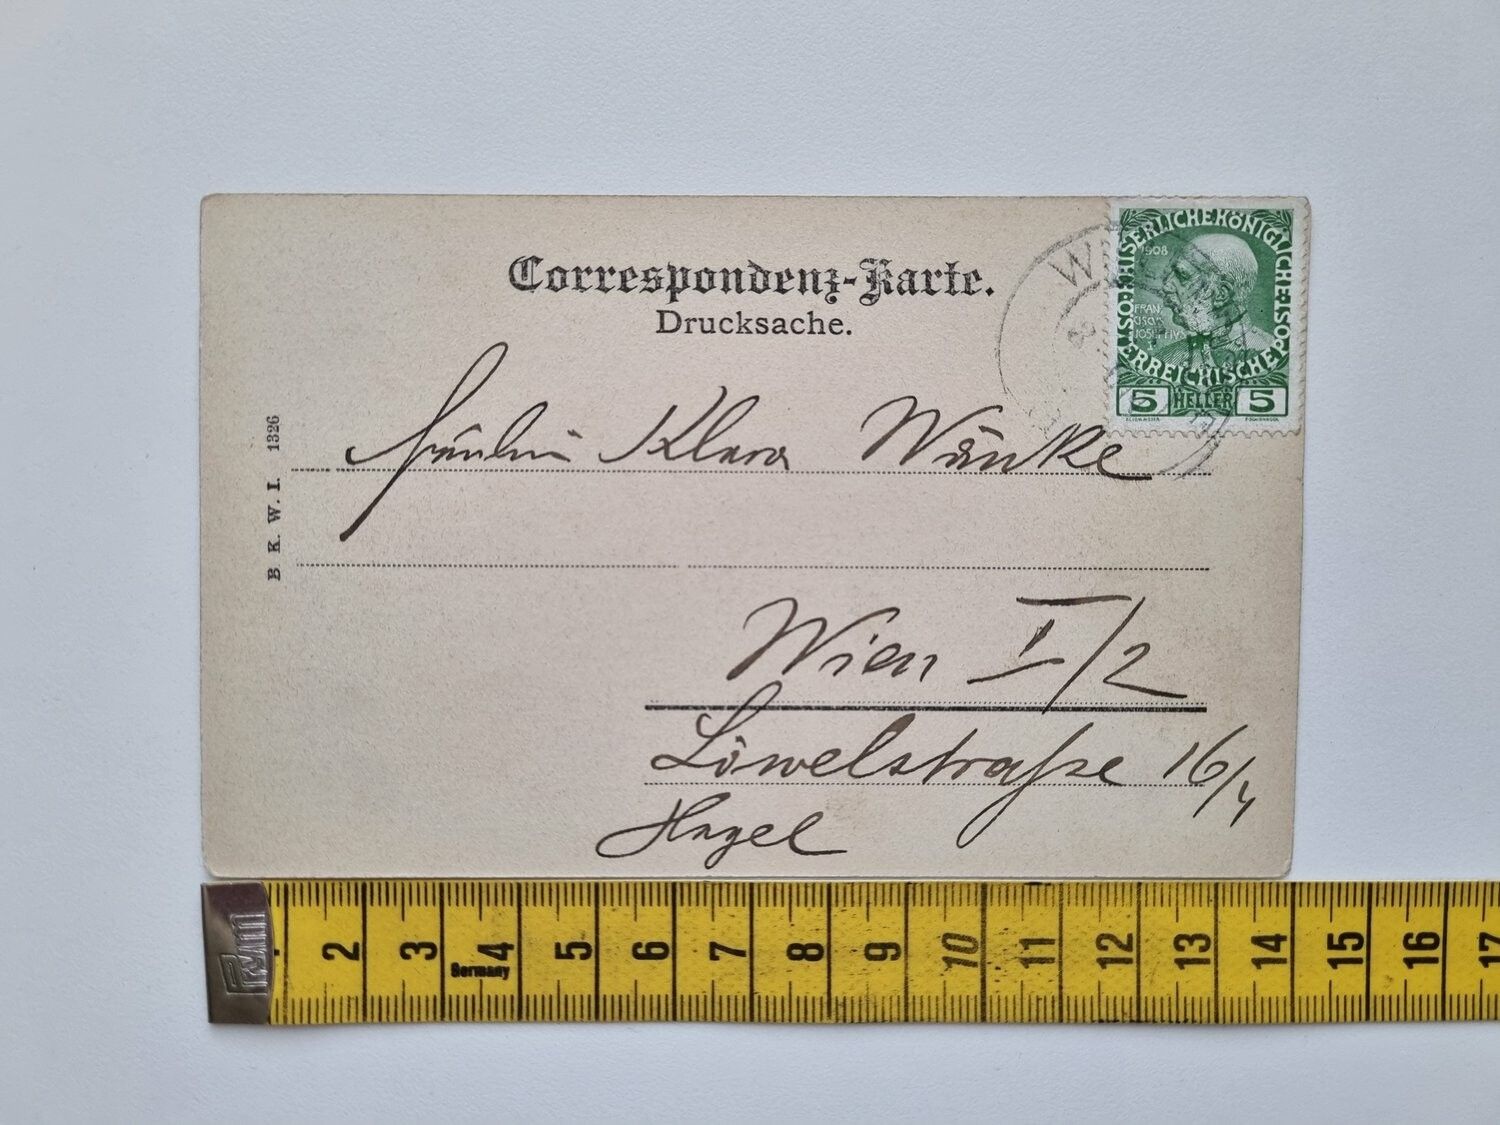 Correspondenz-Karte.
Drucksache.
KAISERLICHEKÖNIGLICHE ÖSTERREICHISCHE POST
1908
FRAN
CISCO
JOSEPHVS
I
5 HELLER 5
W
Fräulein Klara Wänke
Wien I/2
Löwelstraße 16/4
Hazel
B. K. W. I. 1326
Prym
2 3 4 5 6 7 8 9 10 11 12 13 14 15 16 17
Germany